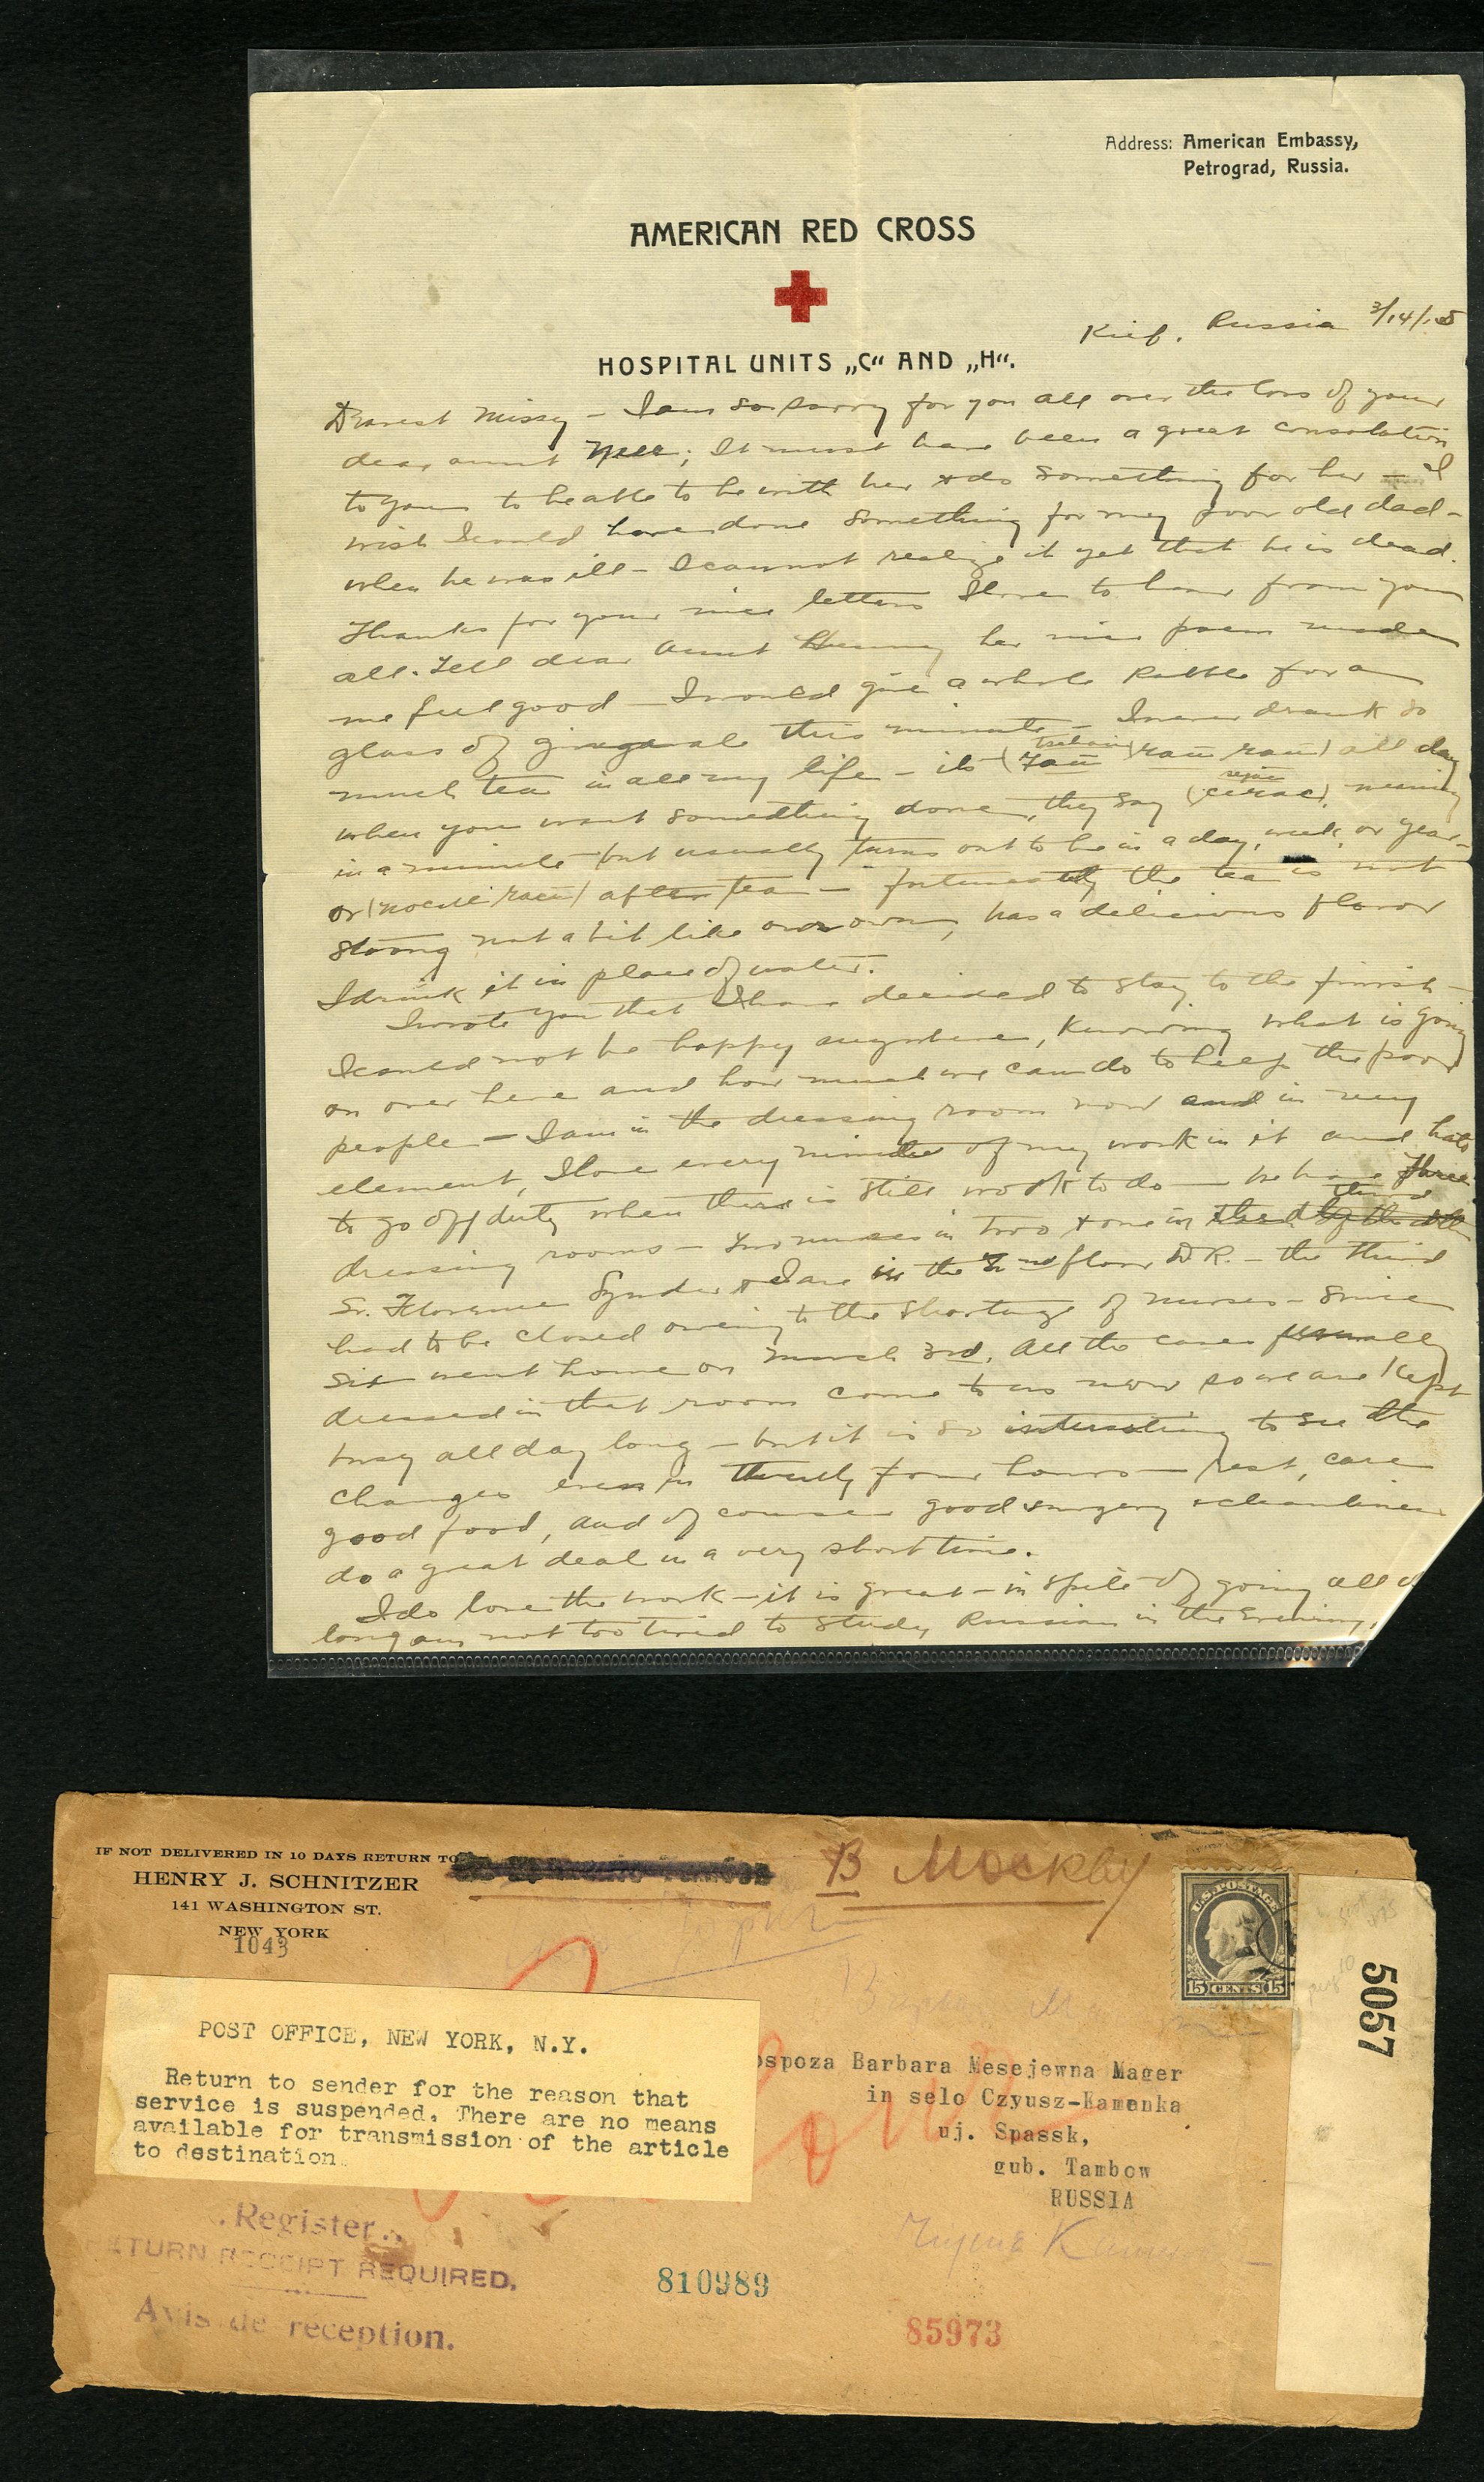 Address: American Embassy,
Petrograd, Russia.
AMERICAN RED CROSS
HOSPITAL UNITS „C“ AND „H“.
Kief. Russia 3/14/15
Dearest Missy – I am so sorry for you all over the loss of your
dear aunt; It must have been a great consolation
to you to be able to be with her & do something for her – I
wish I could have done something for my poor old dad –
when he was ill – I cannot realize it yet that he is dead.
Thanks for your nice letters I love to hear from you
all. Tell dear Aunt her nice poem made
me feel good – I would give a whole Rubble for a
glass of gingerale this minute – I never drank so
much tea in all my life – its ( ) all day
when you want something done, they say ( ), meaning
in a minute – but usually turns out to be in a day, week, or year –
or ( ) after tea – fortunately the tea is not
strong not a bit like our own, has a delicious flavor
I drink it in place of water.
I wrote you that I have decided to stay to the finish –
I could not be happy anywhere, knowing what is going
on over here and how much we can do to help the poor
people – I am in the dressing room now and in my
element, I love every minute of my work in it and hate
to go off duty when there is still work to do – we have three
dressing rooms – two nurses in two & one in third
Sr. Florence Synder & I are in the 2nd floor D.R. – the third
had to be closed owing to the shortage of nurses – since
six went home on March 3rd. All the cases usually
dressed in that room come to us now so we are kept
busy all day long – but it is so interesting to see the
changes even in twenty four hours – rest, care
good food, and of course good surgery & cleanliness
do a great deal in a very short time.
I do love the work – it is great – in spite of going all d
long am not too tired to study Russian in the evening,
IF NOT DELIVERED IN 10 DAYS RETURN TO
HENRY J. SCHNITZER
141 WASHINGTON ST.
NEW YORK
1043
В Москву
U.S. POSTAGE
15 CENTS 15
5057
POST OFFICE, NEW YORK, N.Y.
Return to sender for the reason that
service is suspended. There are no means
available for transmission of the article
to destination.
ospoza Barbara Mesejewna Mager
in selo Czyusz-Kamenka
uj. Spassk,
gub. Tambow
RUSSIA
Register
ETURN RECEIPT REQUIRED.
Avis de reception.
810989
85973